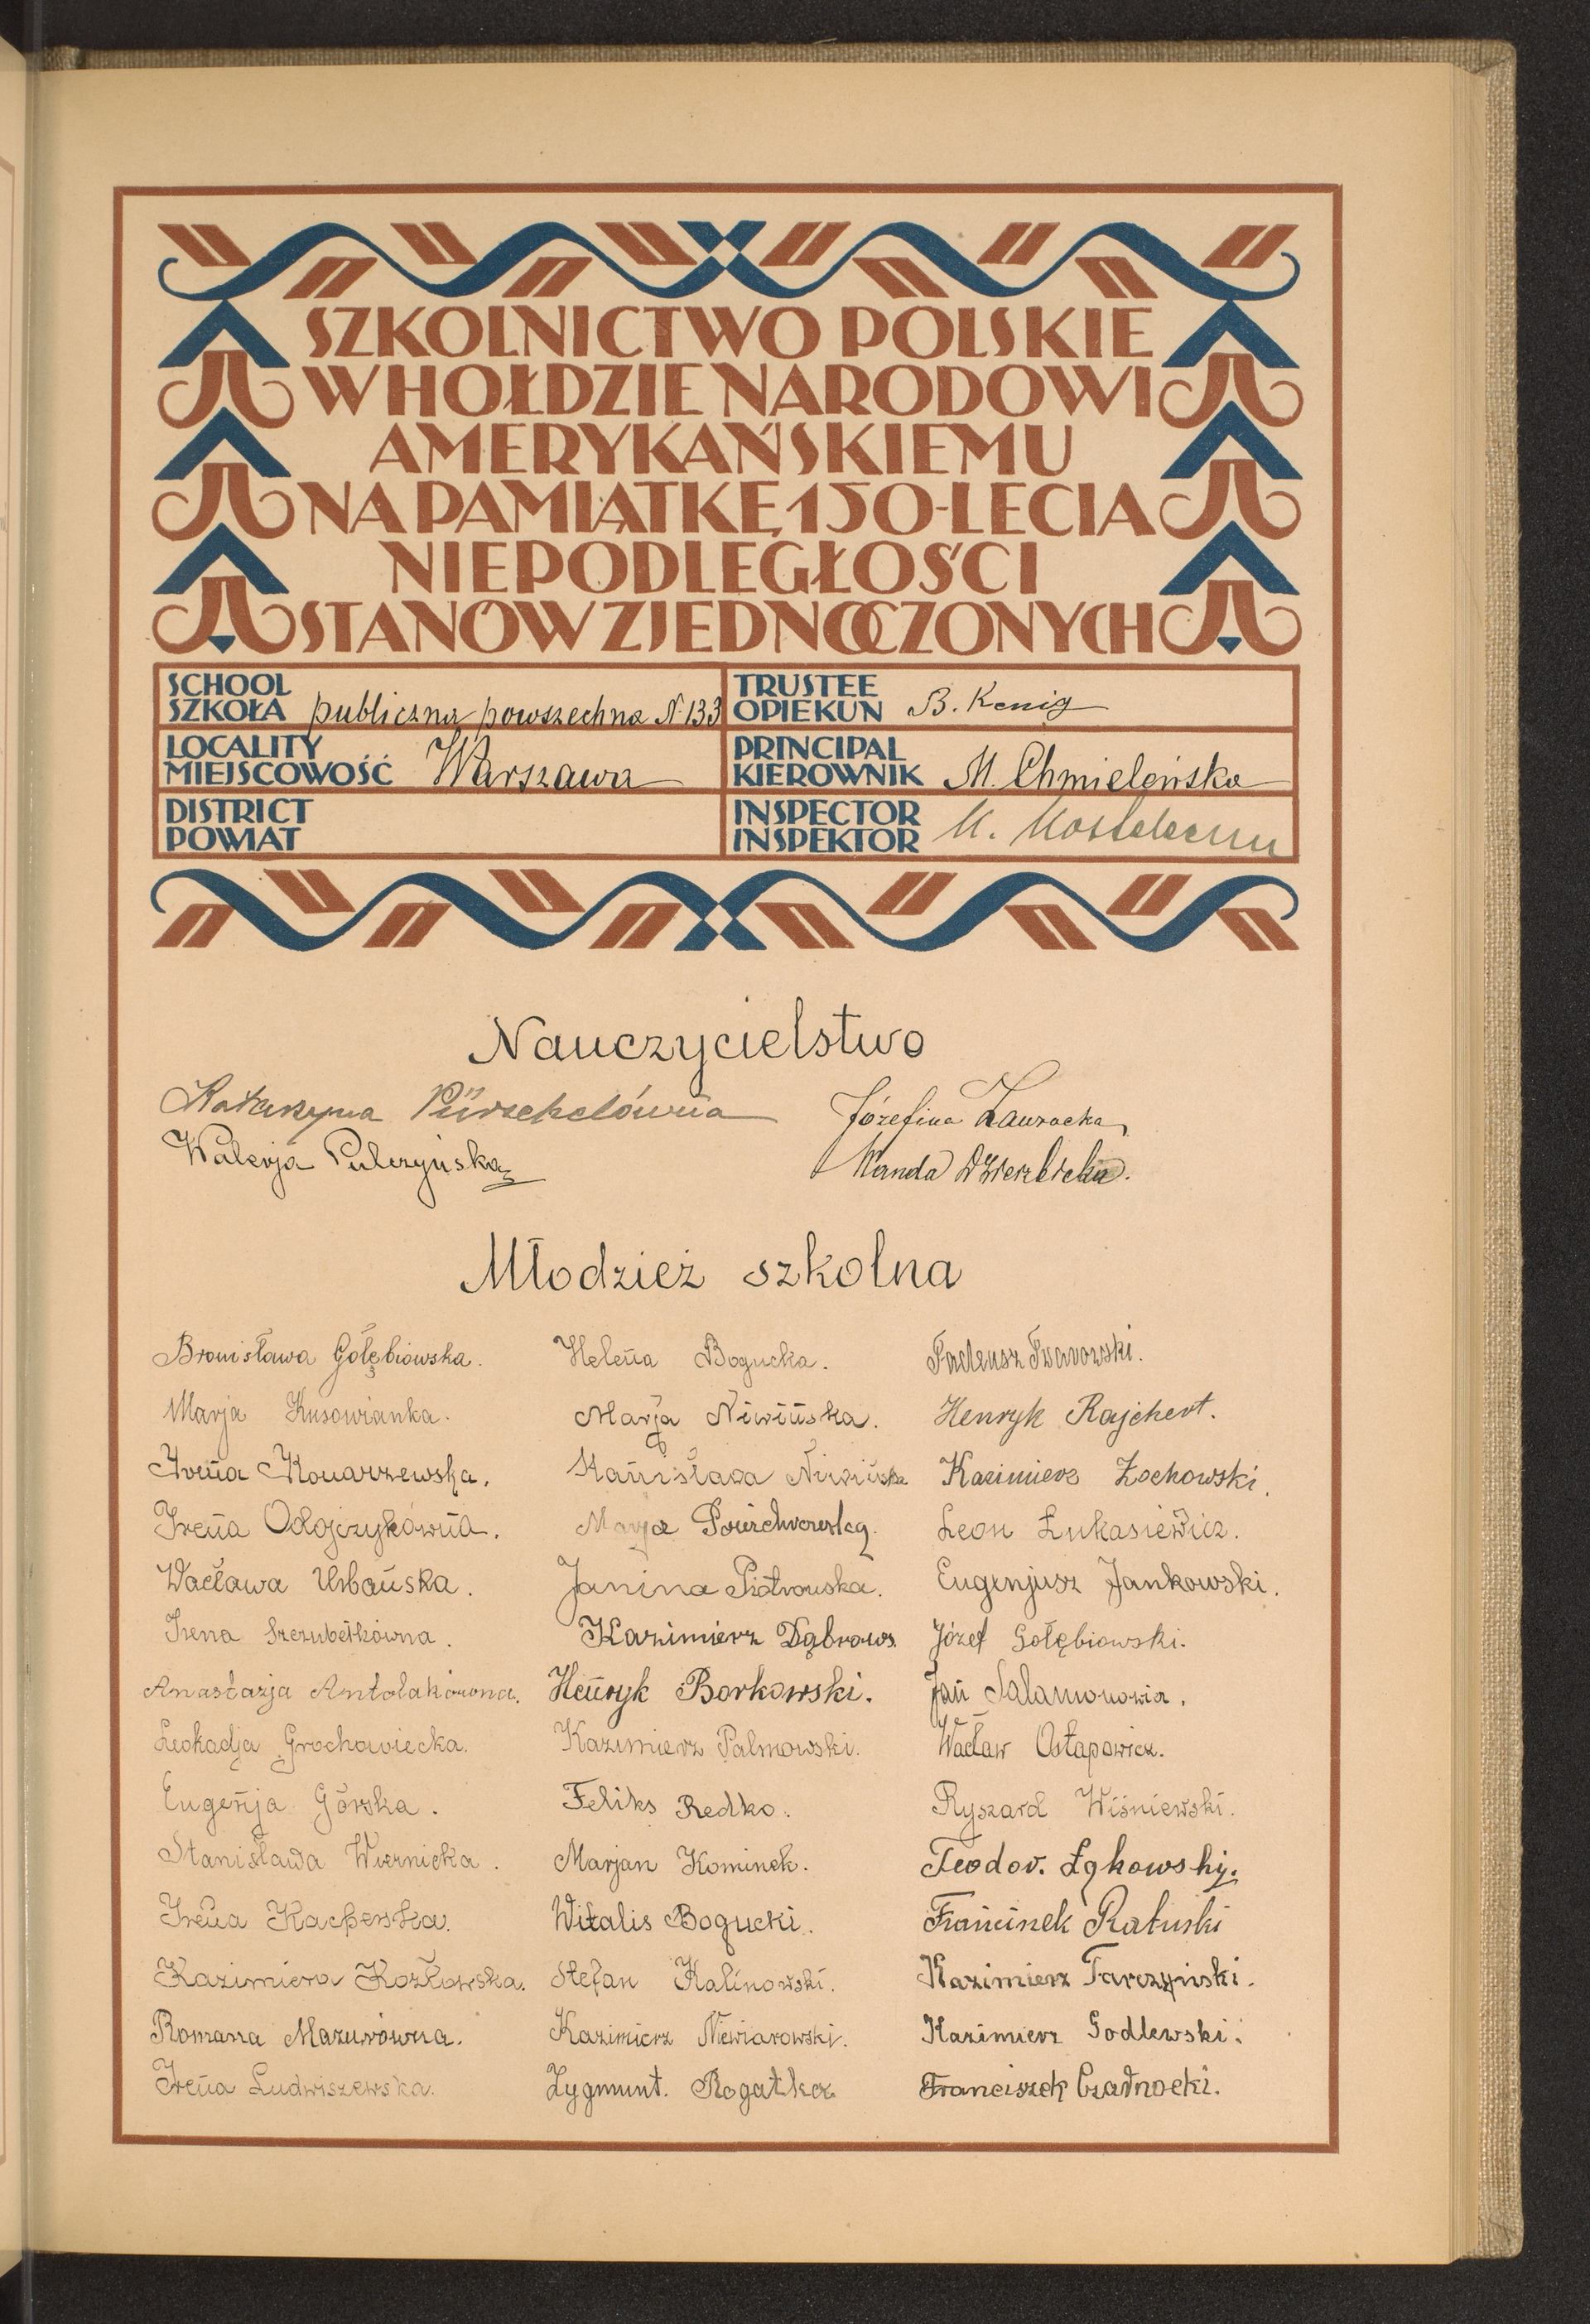 SZKOLNICTWO POLSKIE
W HOŁDZIE NARODOWI
AMERYKAŃSKIEMU
NA PAMIĄTKĘ 150-LECIA
NIEPODLEGŁOŚCI
STANÓW ZJEDNOCZONYCH
SCHOOL
SZKOŁA publiczna powszechna N. 133
TRUSTEE
OPIEKUN B. Kenig
LOCALITY
MIEJSCOWOŚĆ Warszawa
PRINCIPAL
KIEROWNIK M. Chmieleńska
DISTRICT
POWIAT
INSPECTOR
INSPEKTOR
Nauczycielstwo
Katarzyna Pürschelówna Józefina Zawracka
Walerja Pulczyńska Wanda Dzierzbicka.
Młodzież szkolna
Bronisława Gołębiowska. Helena Bogucka. Tadeusz Twarowski.
Marja Kusowianka. Marja Niwińska. Henryk Rajchert.
Irena Konarzewska. Stanisława Niwińska Kazimierz Żochowski.
Irena Odojczykówna. Marja Leon Łukasiewicz.
Wacława Urbańska. Janina Piotrowska. Eugenjusz Jankowski.
Irena Szczubełkówna. Kazimierz Dąbrows. Józef Gołębiowski.
Anastazja Antolakówna. Henryk Borkowski. Jan Salamonowicz.
Leokadja Grochowiecka. Kazimierz Palmowski. Wacław Ostapowicz.
Eugenja Górska. Feliks Redko. Ryszard Wiśniewski.
Stanisława Wiernicka. Marjan Kominek. Teodor. Łąkowsky.
Irena Kacperska. Witalis Bogucki. Franciszek Ratuski
Kazimiera Kozłowska. Stefan Kalinowski. Kazimierz Tarczyński.
Romana Mazurówna. Kazimierz Niewiarowski. Kazimierz Godlewski.
Irena Ludwiszewska. Zygmunt. Rogatka Franciszek Czarnocki.